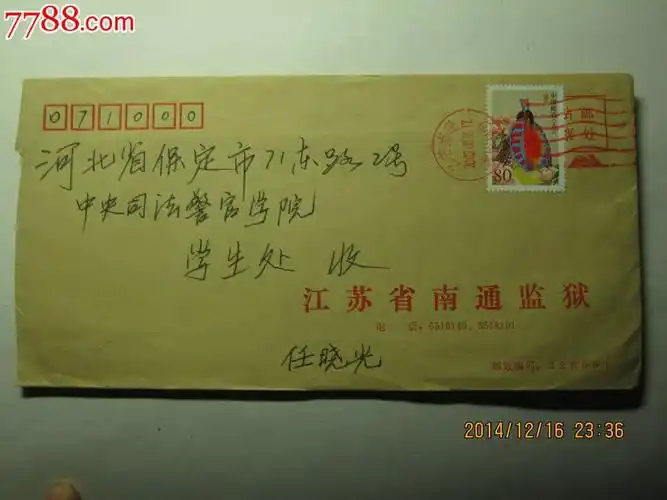 7788.com
071000
河北省保定市71东路2号
中央司法警官学院
学生处 收
80
江苏省南通监狱
电 话:
任晓光
邮政编码:
2014/12/16 23:36